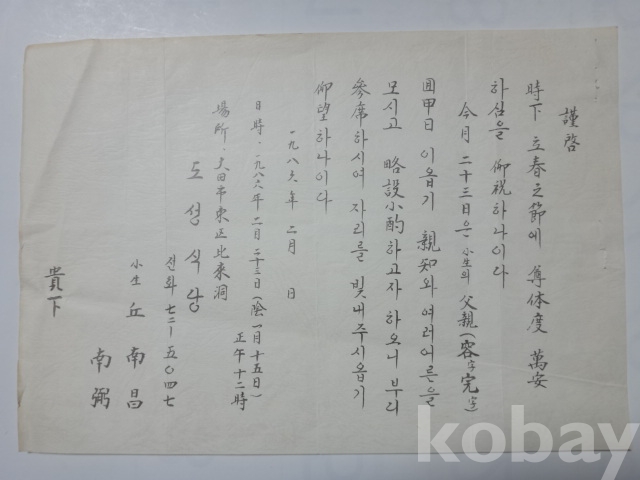 謹啓
時下 立春之節에 尊体度 萬安
하심을 仰祝하나이다
今月 二十三日은 小生의 父親(容字完字)
回甲日이옵기 親知와 여러어른을
모시고 略設小酌하고자 하오니 부디
參席하시여 자리를 빛내주시옵기
仰望하나이다
一九八六年 二月 日
日時、一九八六年 二月 二十三日(陰一月十五日)
正午十二時
場所、大田市東區比來洞
도성식당
전화 七二-五〇四七
小生 丘南昌
南弼
貴下
kobay